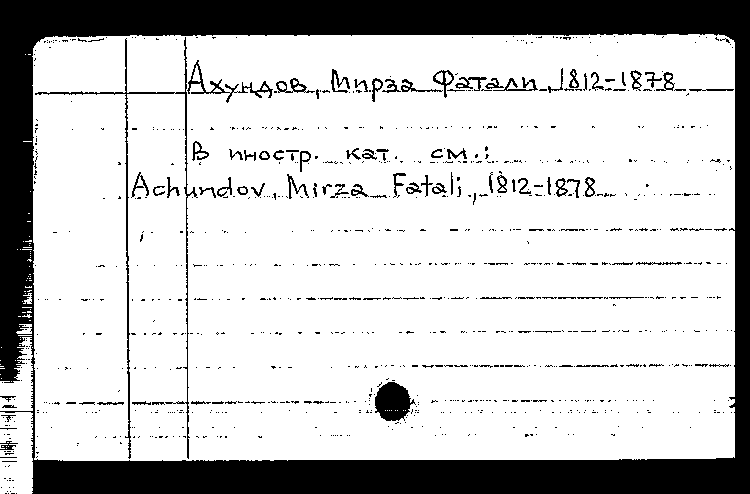 Ахундов, Мирза Фатали, 1812-1878
В иностр. кат. см.:
Achundov, Mirza Fatali, 1812-1878